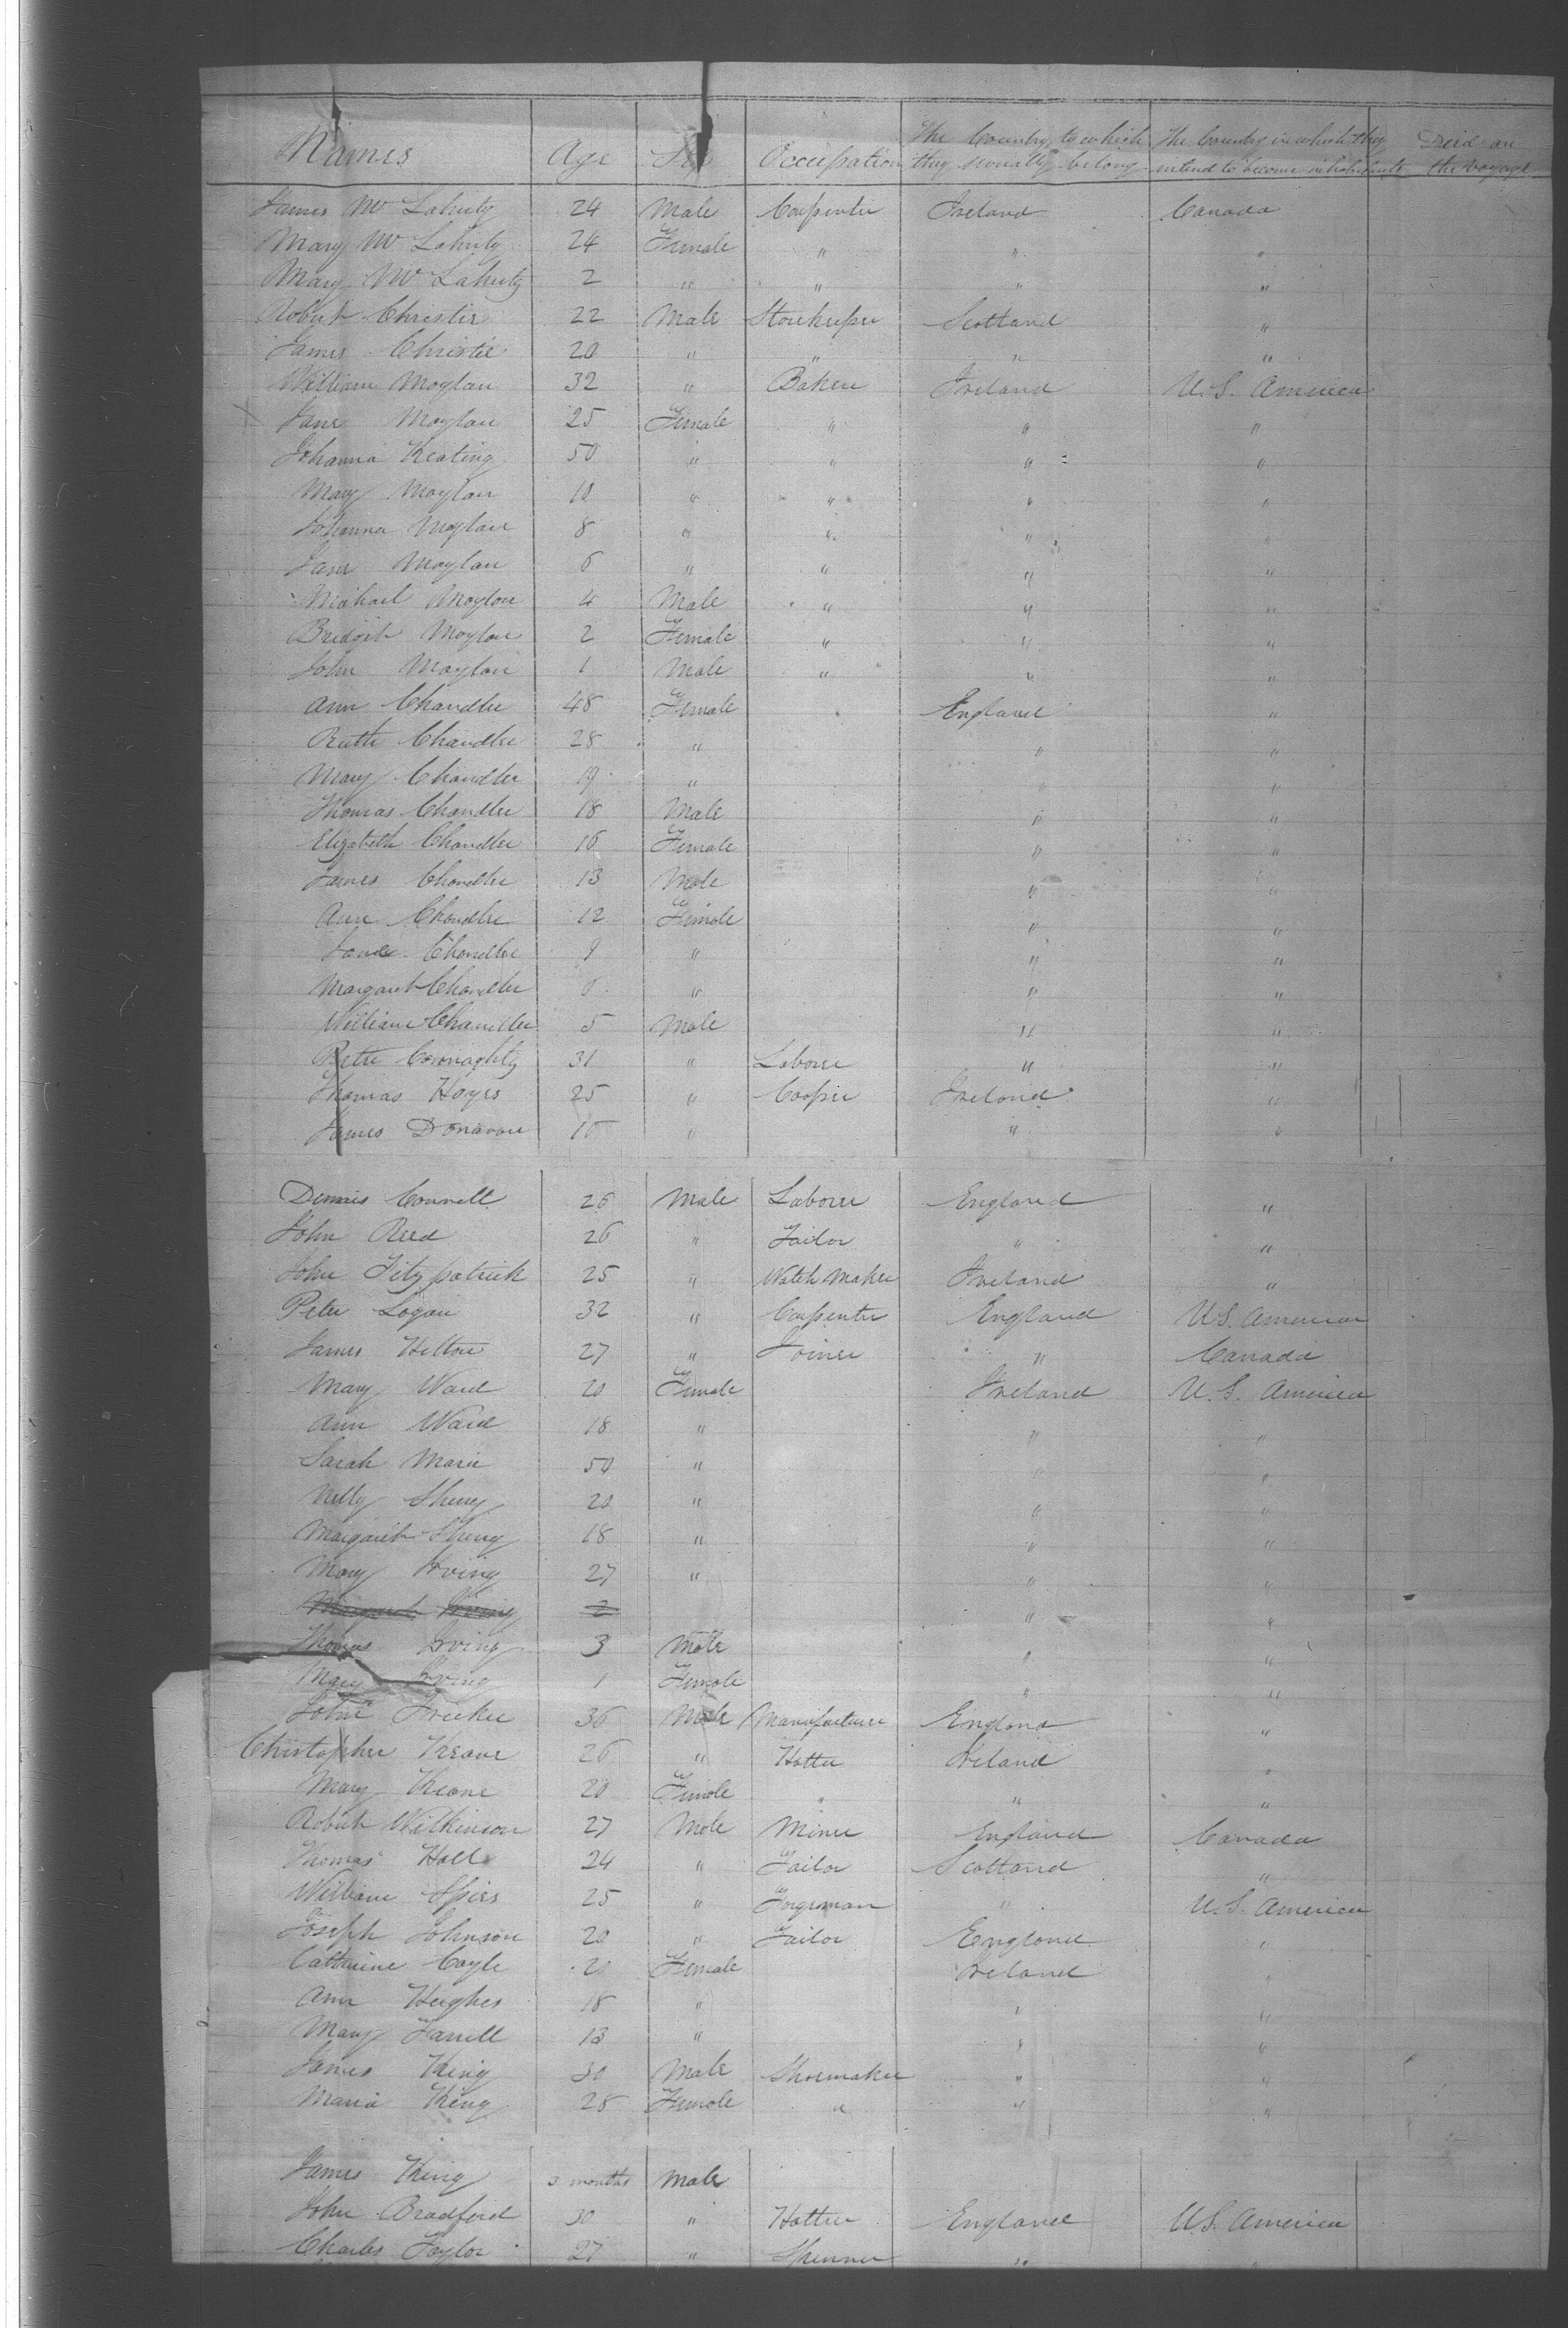 Names Age Sex Occupation The Country to which they severally belong The Country in which they intend to become inhabitants Died on the voyage
James McLahuty 24 Male Carpenter Ireland Canada
Mary McLahuty 24 Female " " "
Mary McLahuty 2 " " " "
Robert Christie 22 Male Storekeeper Scotland "
James Christie 20 " " " "
William Moylan 32 " Baker Ireland U.S. America
Jane Moylan 25 Female " " "
Johanna Keating 50 " " " "
Mary Moylan 10 " " " "
Johanna Moylan 8 " " " "
Jane Moylan 6 " " " "
Michael Moylan 4 Male " " "
Bridgit Moylan 2 Female " " "
John Moylan 1 Male " " "
Ann Chandler 48 Female England "
Ruth Chandler 28 " " "
Mary Chandler 19 " " "
Thomas Chandler 18 Male " "
Elizabeth Chandler 16 Female " "
James Chandler 13 Male " "
Ann Chandler 12 Female " "
Jane Chandler 9 " " "
Margaret Chandler " " "
William Chandler 5 Male " "
Peter Connaghty 31 " Laborer " "
Thomas Hayes 25 " Cooper Ireland "
James Donavan 10 " " "
Dennis Connell 26 Male Laborer England "
John Reed 26 " Tailor " "
John Fitzpatrick 25 " Watch Maker Ireland "
Peter Logan 32 " Carpenter England U.S. America
James Hilton 27 " Joiner " Canada
Mary Ward 20 Female Ireland U.S. America
Ann Ward 18 " " "
Sarah Marie 50 " " "
Nelly Sherry 20 " " "
Margaret Sherry 18 " " "
Mary Irving 27 " " "
Margaret Irving 2 " "
Thomas Irving 3 Male " "
Mary Irving 1 Female " "
John Fricker 36 Male Manufacturer England "
Christopher Keane 26 " Hatter Ireland "
Mary Keane 20 Female " " "
Robert Wilkinson 27 Male Miner England Canada
Thomas Hall 24 " Tailor Scotland "
William Spiers 25 " Forgeman " U.S. America
Joseph Johnson 20 " Tailor England "
Catherine Coyle 20 Female Ireland "
Ann Hughes 18 " " "
Mary Farrell 13 " " "
James King 30 Male Shoemaker " "
Maria King 28 Female " " "
James King 3 months Male
John Bradford 30 " Hatter England U.S. America
Charles Taylor 27 " Spinner " "